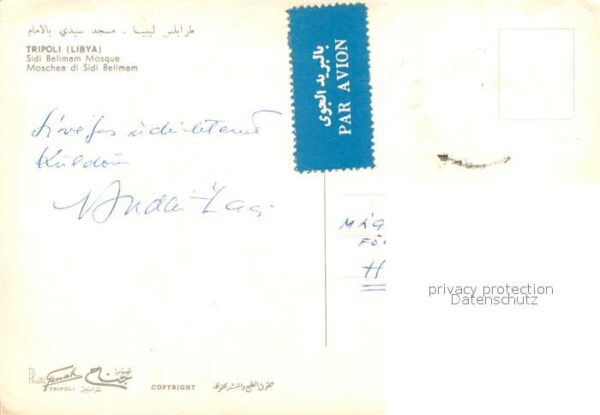 طرابلس ليبيا ـ مسجد سيدي بالامام
TRIPOLI (LIBYA)
Sidi Belimam Mosque
Moschea di Sidi Belimam
بالبريد الجوى
PAR AVION
Szívélyes üdvözletemet
Küldöm
MÁG
FŐ
H
privacy protection
Datenschutz
Photo
جناح
TRIPOLI
طرابلس
COPYRIGHT
حقوق الطبع والنشر محفوظة